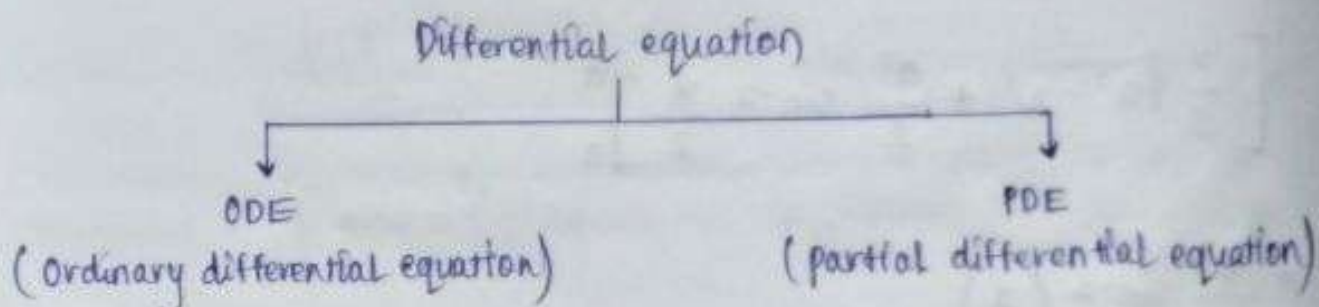 Differential equation
ODE PDE
(ordinary differential equation) (partial differential equation)